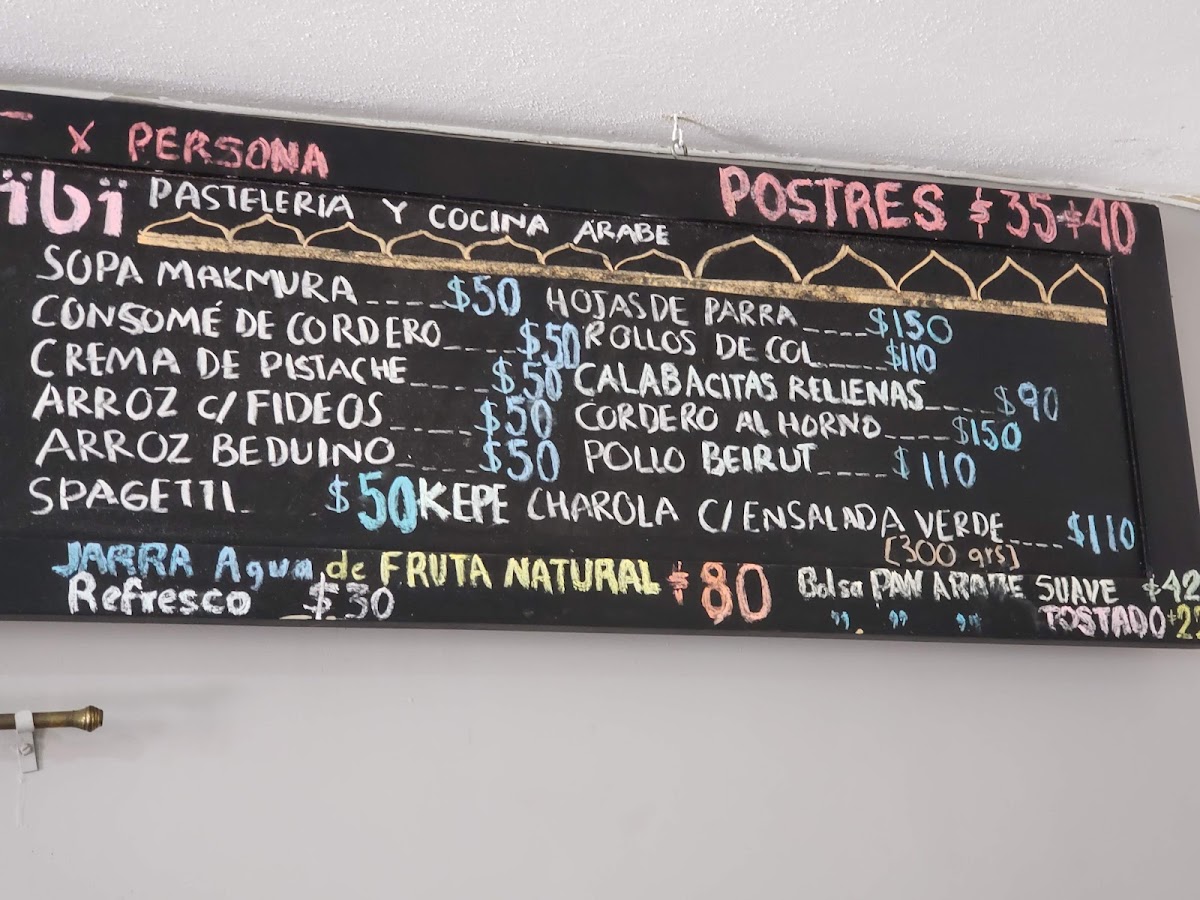 X PERSONA
POSTRES $35 $40
ïbï PASTELERIA Y COCINA ARABE
SOPA MAKMURA____$50
CONSOMÉ DE CORDERO____$50
CREMA DE PISTACHE____$50
ARROZ C/FIDEOS____$50
ARROZ BEDUINO____$50
SPAGETTI_ $50
HOJAS DE PARRA____$150
ROLLOS DE COL____$110
CALABACITAS RELLENAS____$90
CORDERO AL HORNO____$150
POLLO BEIRUT____$110
KEPE CHAROLA C/ENSALADA VERDE____$110
[300 grs]
JARRA Agua de FRUTA NATURAL $80
Refresco $30
Bolsa PAN ARABE SUAVE $42
" " " TOSTADO